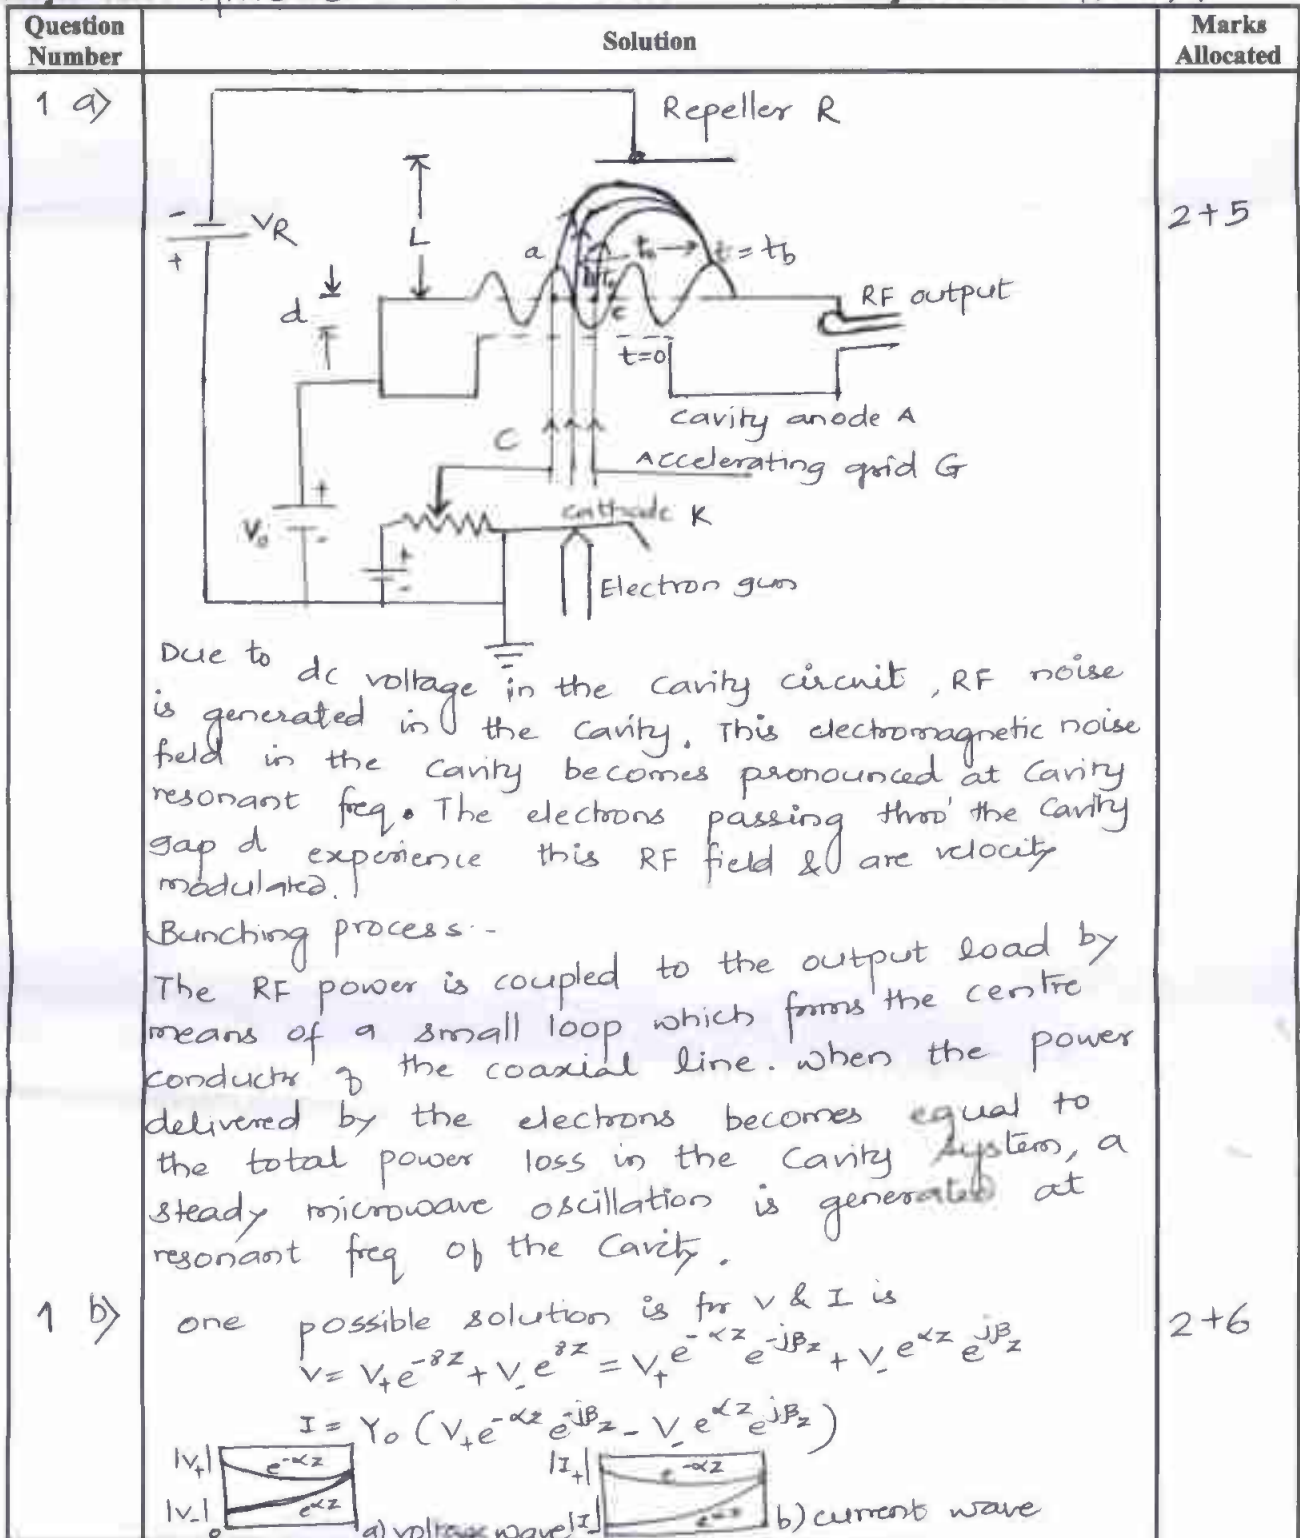 Question Number
Solution
Marks Allocated
1 a)
2+5
Repeller R
- VR
+
L
a
t0
t = tb
d
c
RF output
t=0
cavity anode A
C
Accelerating grid G
+
V0
-
cathode K
+
-
Electron gun
Due to dc voltage in the cavity circuit, RF noise
is generated in the cavity. This electromagnetic noise
field in the cavity becomes pronounced at cavity
resonant freq. The electrons passing thro' the cavity
gap d experience this RF field & are velocity
modulated.
Bunching process:-
The RF power is coupled to the output load by
means of a small loop which forms the centre
conductr of the coaxial line. when the power
delivered by the electrons becomes equal to
the total power loss in the cavity system, a
steady microwave oscillation is generated at
resonant freq of the Cavity.
1 b)
2+6
one possible solution is for V & I is
V = V₊e^{-γz} + V₋e^{γz} = V₊e^{-αz} e^{-jβz} + V₋e^{αz} e^{jβz}
I = Y₀ (V₊e^{-αz} e^{-jβz} - V₋e^{αz} e^{jβz})
|V₊| e^{-αz}
|I₊| e^{-αz}
|V₋| e^{αz}
0
a) voltage wave
b) current wave